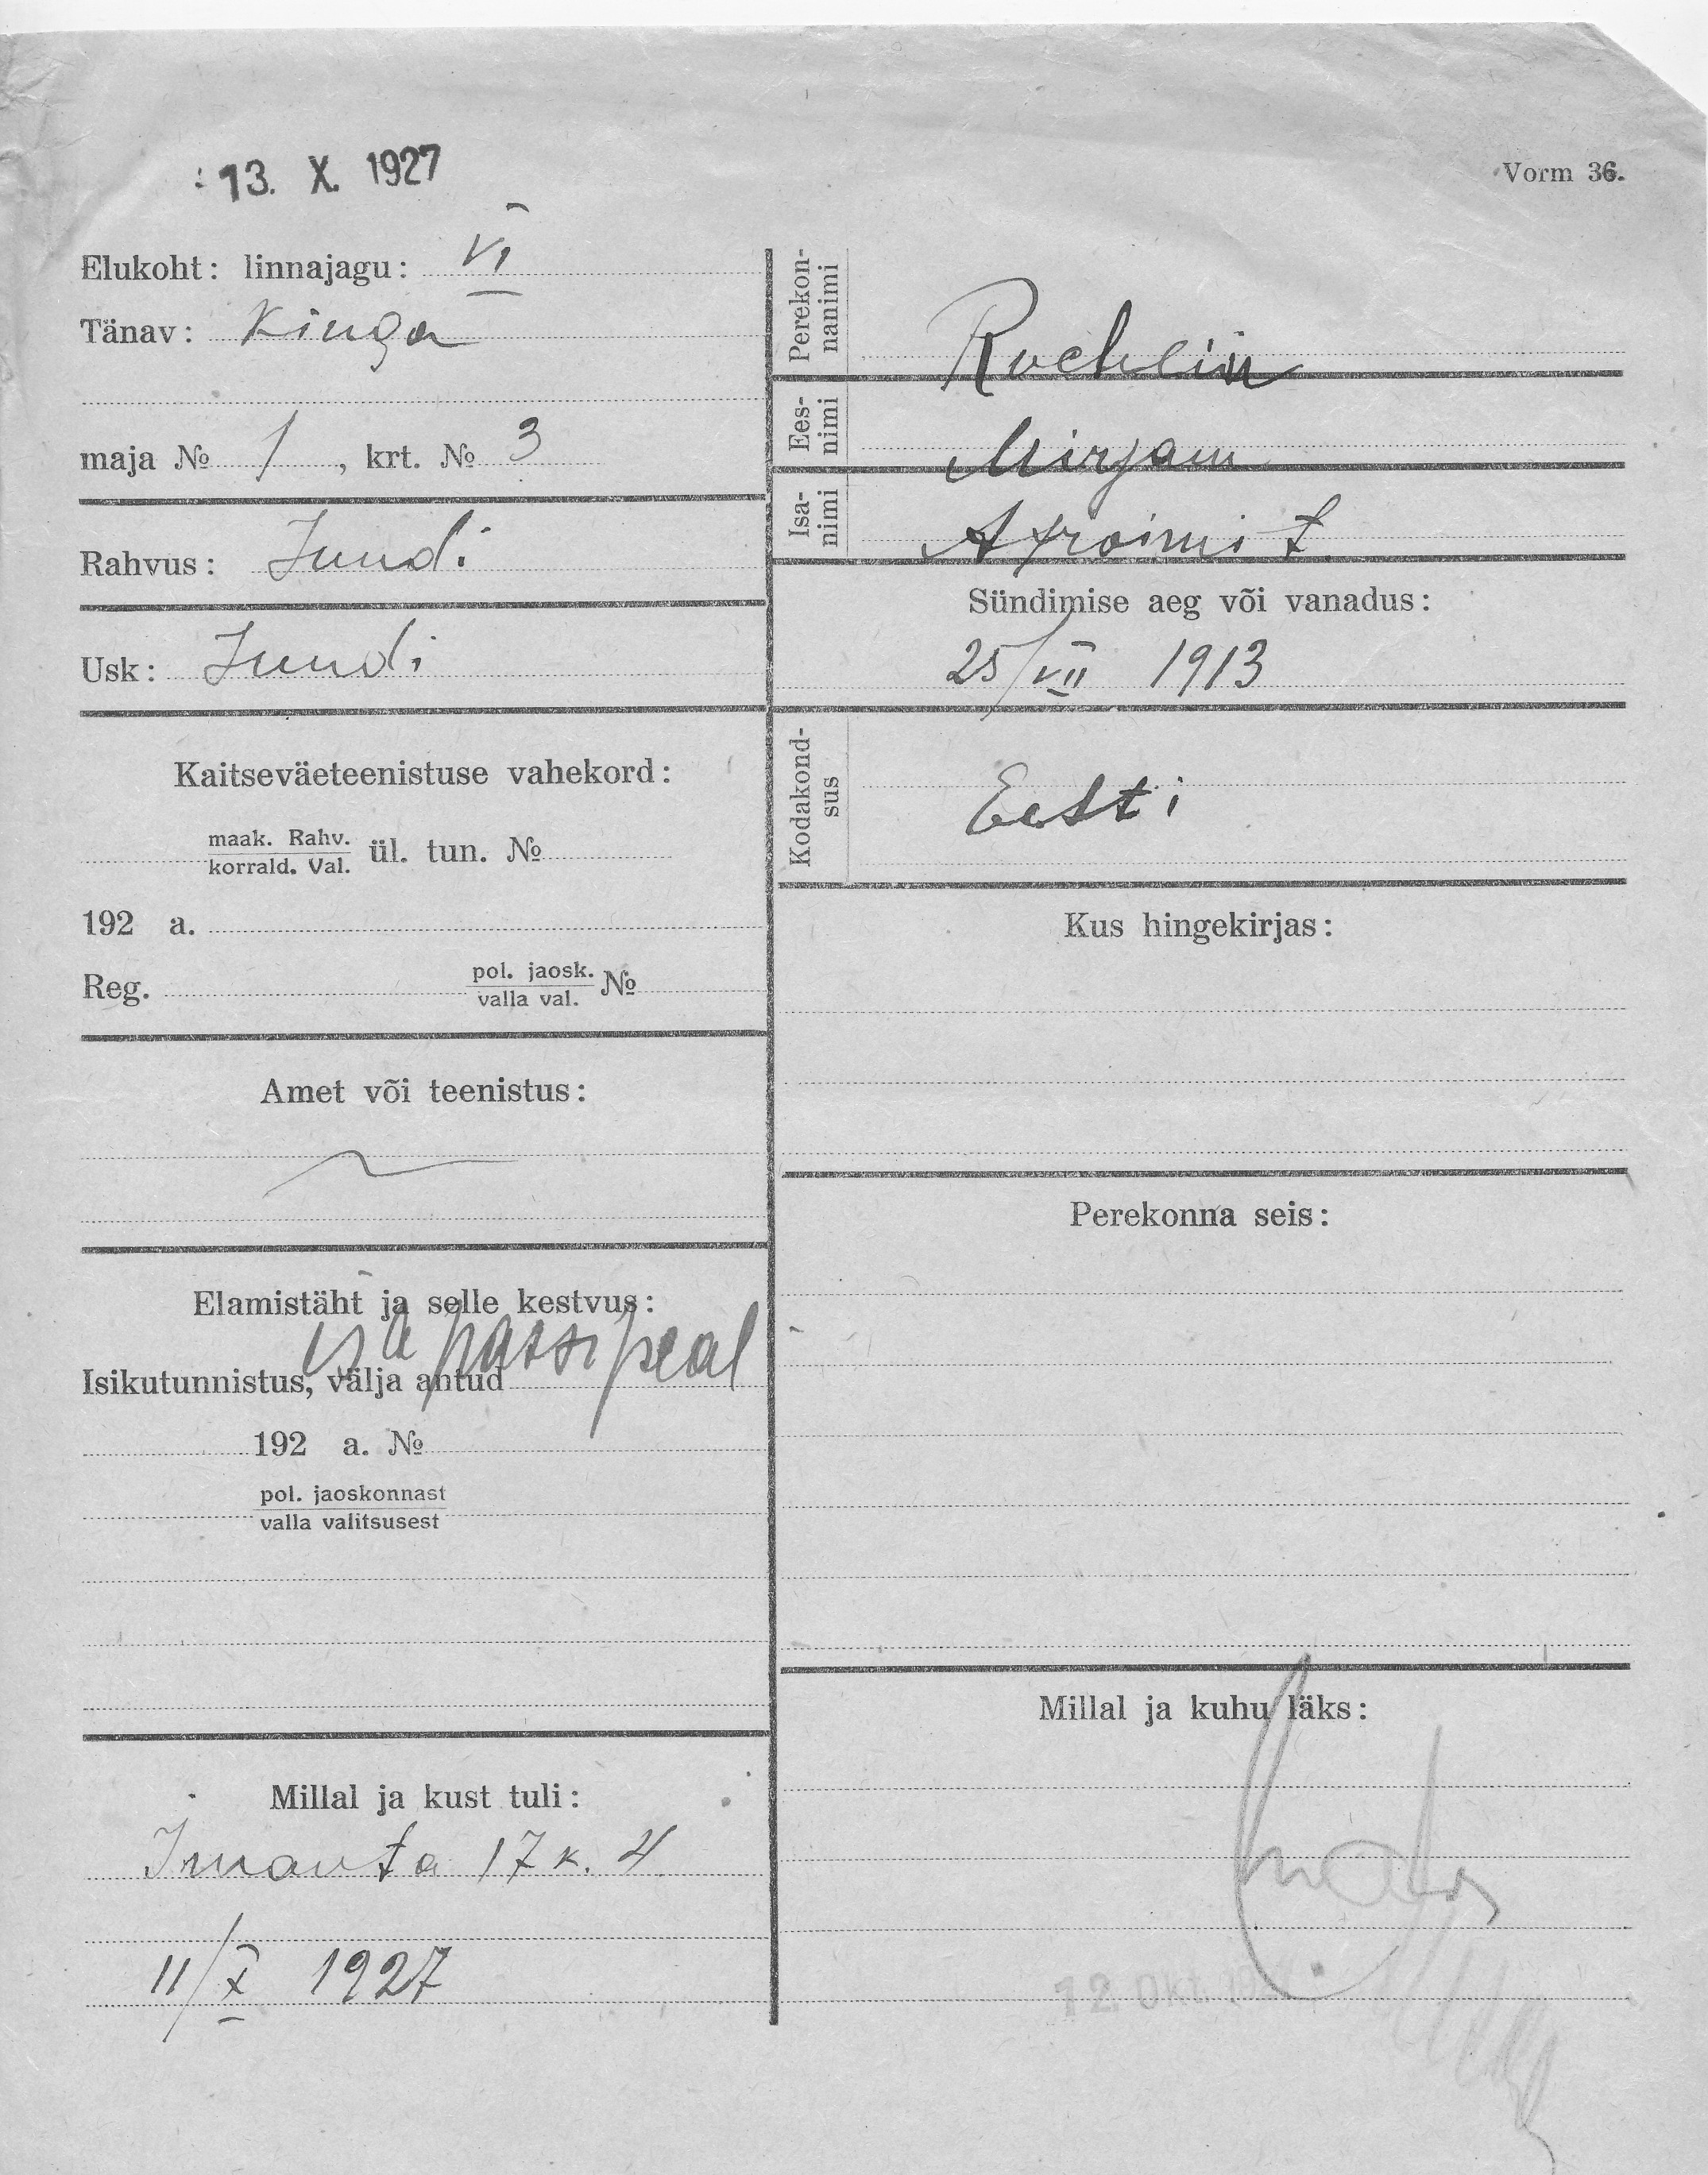 : 13. X. 1927
Vorm 36.
Elukoht: linnajagu: VI
Tänav: Kinga
maja № 1, krt. № 3
Rahvus: Juudi
Usk: Juudi
Kaitseväeteenistuse vahekord:
maak. Rahv.
korrald. Val.
ül. tun. №
192 a.
Reg. pol. jaosk. №
valla val.
Amet või teenistus:
Elamistäht ja selle kestvus:
isa passi peal
Isikutunnistus, välja antud
192 a. №
pol. jaoskonnast
valla valitsusest
Millal ja kust tuli:
Imanta 17 k. 4
11/X 1927
Perekon-
nanimi
Rochlin
Ees-
nimi
Mirjam
Isa-
nimi
Afroimi t.
Sündimise aeg või vanadus:
25/VII 1913
Kodakond-
sus
Eesti
Kus hingekirjas:
Perekonna seis:
Millal ja kuhu läks:
12. Okt. 192